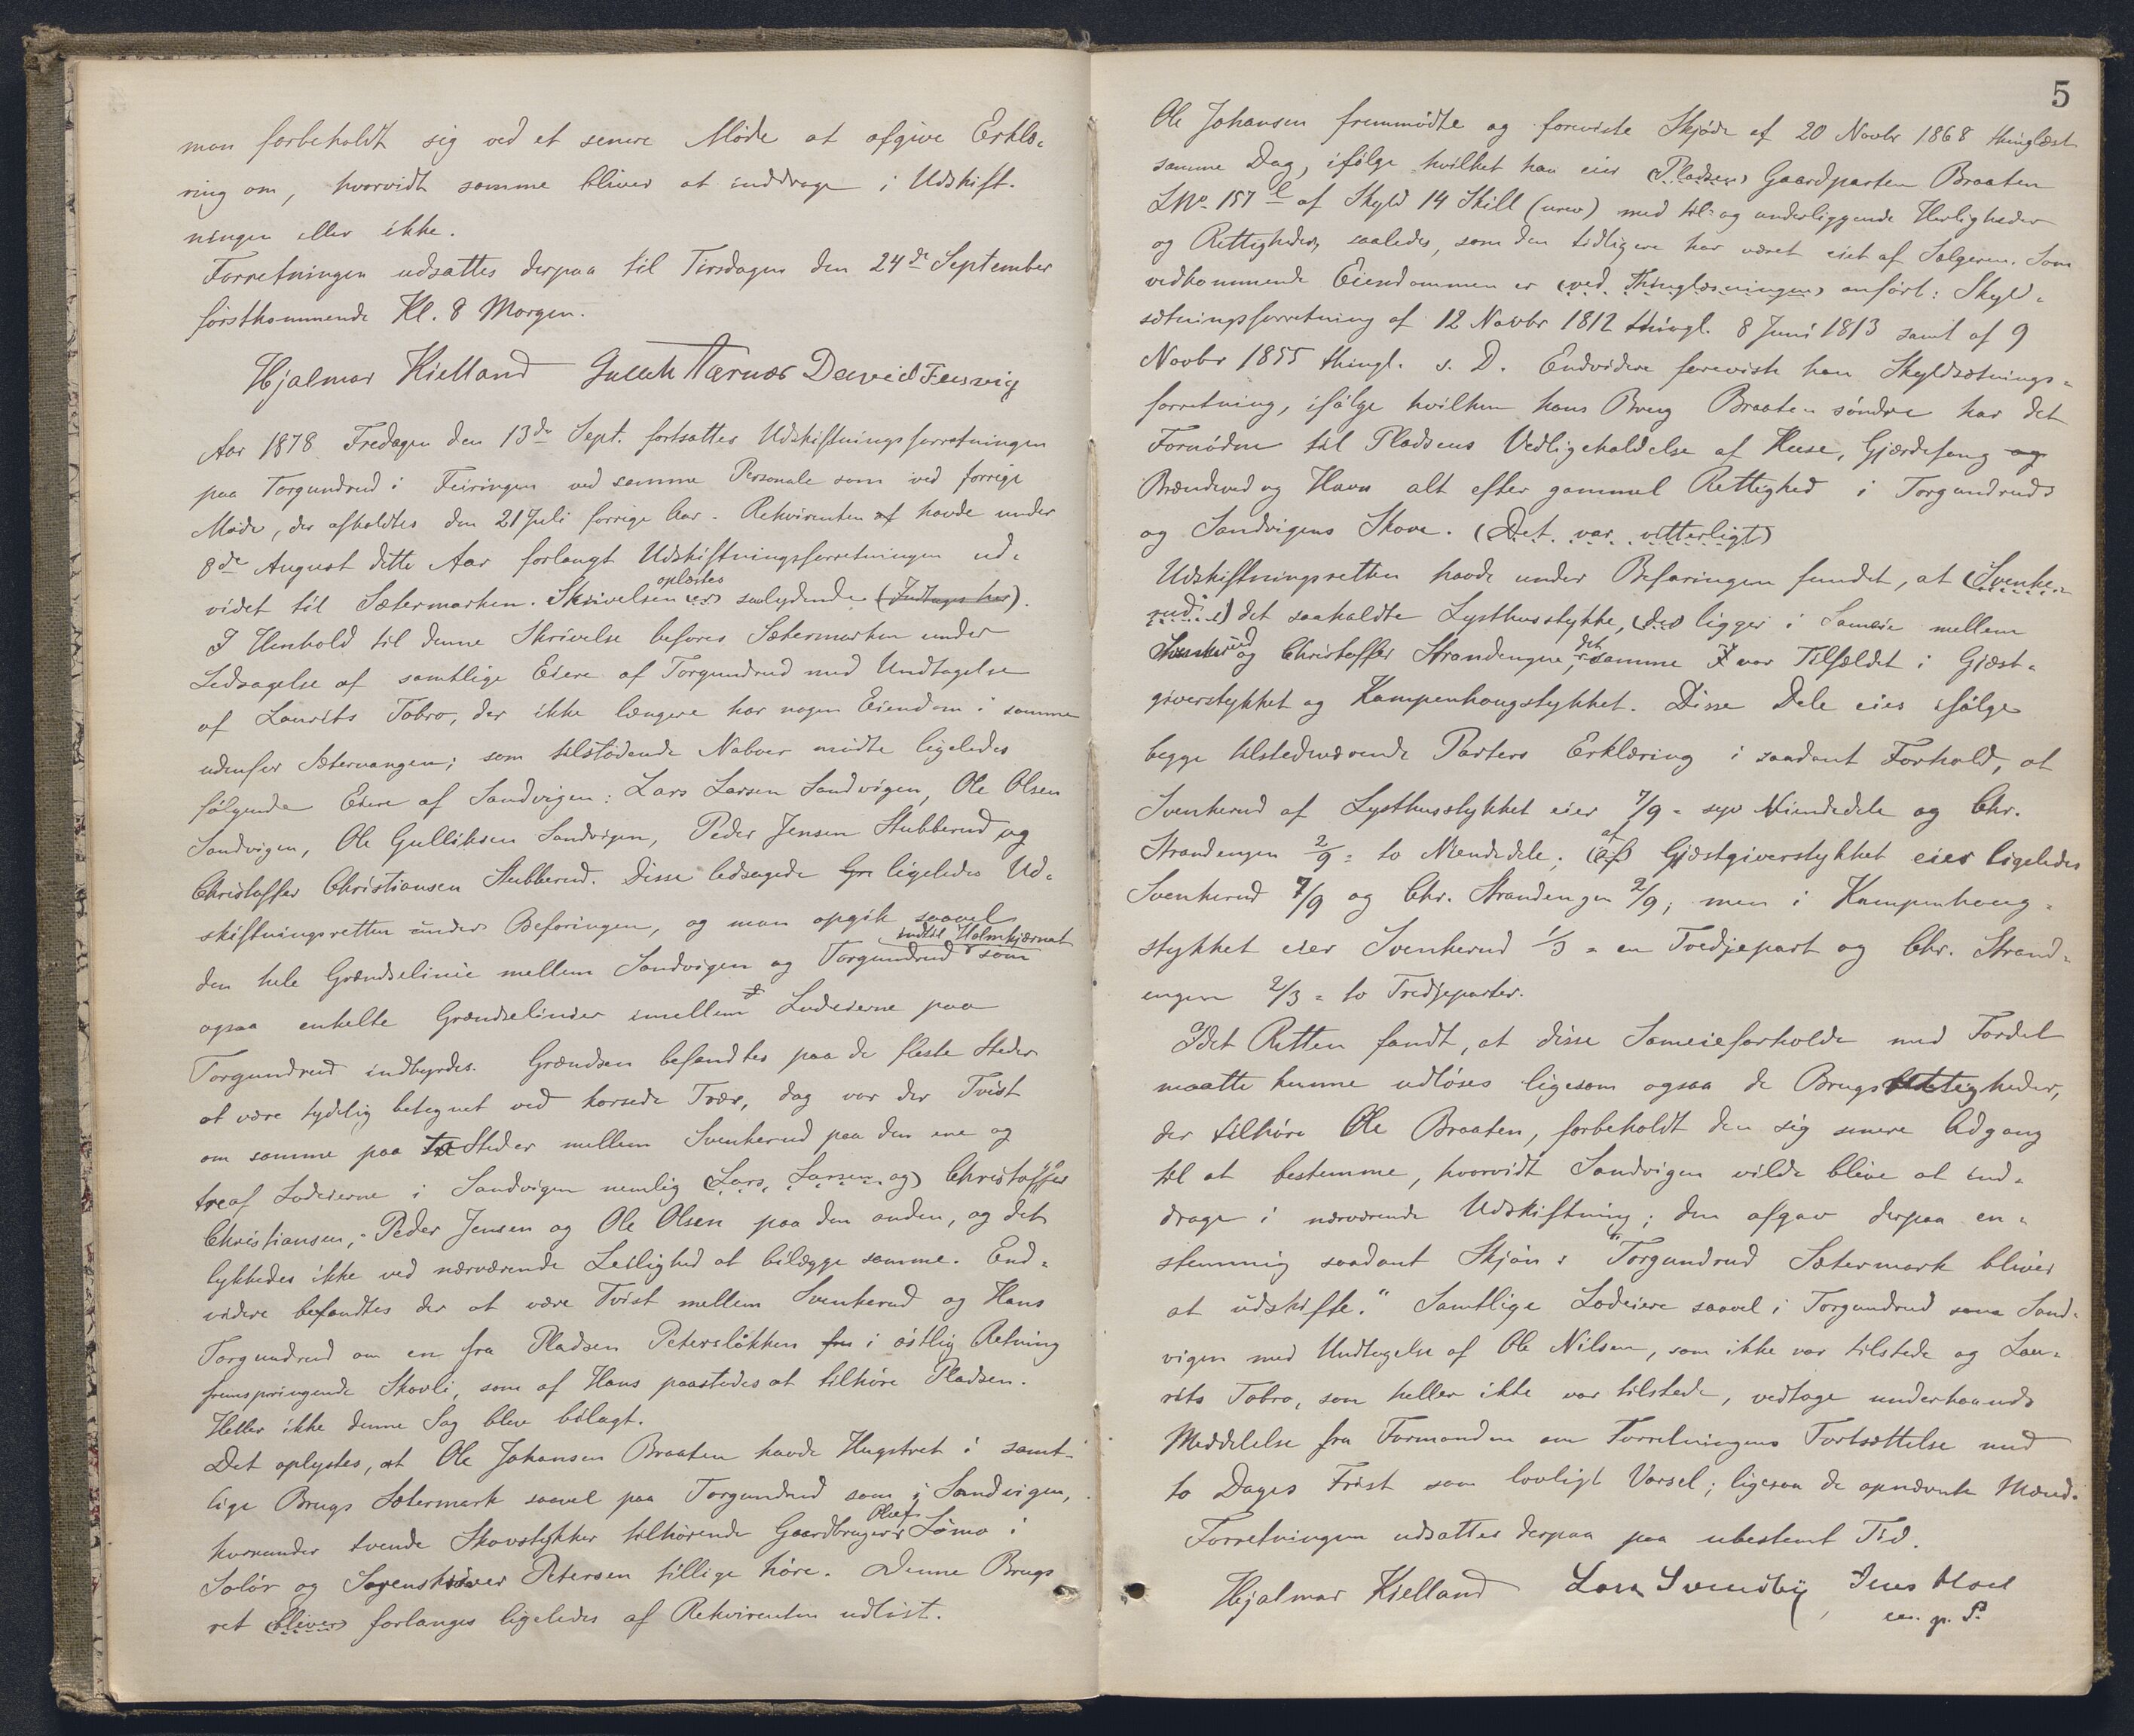 man forbeholdt sig ved et senere Møde at afgive Erklæ-
ring om, hvorvidt samme bliver at inddrage i Udskift-
ningen eller ikke.
Forretningen udsattes derpaa til Tirsdagen den 24de September
førstkommende Kl. 8 Morgen.
Hjalmar Kielland Gulik Tærnæs David Feiring
Aar 1878 Fredagen den 13de Sept. fortsattes Udskiftningsforretningen
paa Torgundrud i Feiringen ved samme Personale som ved forrige
Møde, der afholdtes den 21 Juli forrige Aar. Rekvirenten af havde under
8de August dette Aar forlangt Udskiftningsforretningen ud-
videt til Sætermarken. Skrivelsen (er) oplæstes saalydende (Indtages her).
I Henhold til denne Skrivelse befores Sætermarken under
Ledsagelse af samtlige Eiere af Torgundrud med Undtagelse
af Laurits Tobro, der ikke længere har nogen Eiendom i samme
udenfor Sætervangen; som tilstødende Naboer mødte ligeledes
følgende Eiere af Sandvigen: Lars Larsen Sandvigen, Ole Olsen
Sandvigen, Ole Gulliksen Sandvigen, Peder Jensen Stubberud og
Christoffer Christiansen Stubberud. Disse ledsagede Gr ligeledes Ud-
skiftningsretten under Befaringen, og man opgik saavel
den hele Grændselinie mellem Sandvigen og Torgundrud indtil Holmkjærnet som
ogsaa enkelte Grændselinier imellem Lodeierne paa
Torgundrud indbyrdes. Grændsen befandtes paa de fleste Steder
at være tydelig betegnet ved korsede Træer, dog var der Tvist
om samme paa to Steder mellem Svenkerud paa den ene og
tre af Lodeierne i Sandvigen nemlig (Lars Larsen og) Christoffer
Christiansen, Peder Jensen og Ole Olsen paa den anden, og det
lykkedes ikke ved nærværende Leilighed at bilægge samme. End-
videre befandtes der at være Tvist mellem Svenkerud og Hans
Torgundrud om en fra Pladsen Petersløkken fra i østlig Retning
fremspringende Skovli, som af Hans paastodes at tilhøre Pladsen.
Heller ikke denne Sag blev bilagt.
Det oplystes, at Ole Johansen Braaten havde Hugstret i samt-
lige Brugs Sætermark saavel paa Torgundrud som i Sandvigen,
hvorunder tvende Skovstykker tilhørende Gaardbruger Oluf Lømo i
Solør og Sagenskriver Petersen tillige høre. Denne Brugs
ret (bliver) forlanges ligeledes af Rekvirenten udløst.
5
Ole Johansen fremmødte og foreviste Skjøde af 20 Novbr 1868 thinglæst
samme Dag, ifølge hvilket han eier (Pladsen) Gaardparten Braaten
LNo 157 e af Skyld 14 Skill (urev) med til- og underliggende Herligheder
og Rettigheder, saaledes, som den tidligere har været eiet af Sælgeren. Som
vedkommende Eiendommen er (ved Thinglæsningen) anført: Skyld-
sætningsforretning af 12 Novbr 1812 thingl. 8 Juni 1813 samt af 9
Novbr 1855 thingl. s. D. Endvidere foreviste han Skyldsætnings-
forretning, ifølge hvilken hans Brug Braaten søndre har det
Fornødne til Pladsens Vedligeholdelse af Huse, Gjærdefang og
Brændeved og Havn alt efter gammel Rettighed i Torgundruds
og Sandvigens Skove. (Det var vitterligt)
Udskiftningsretten havde under Befaringen fundet, at (Svenke-
rud i) det saakaldte Lysthusstykke, (der) ligger i Sameie mellem
Svenkerud og Christoffer Strandengen, det samme var Tilfældet i Gjæst-
giverstykket og Kampenhougstykket. Disse Dele eies ifølge
begge tilstedeværende Parters Erklæring i saadant Forhold, at
Svenkerud af Lysthusstykket eier 7/9 = syv Niendedele og Chr.
Strandengen 2/9 = to Niendedele; (af) af Gjæstgiverstykket eier ligeledes
Svenkerud 7/9 og Chr. Strandengen 2/9; men i Kampenhoug-
stykket eier Svenkerud 1/3 = en Tredjepart og Chr. Strand-
engen 2/3 = to Tredjeparter.
Idet Retten fandt, at disse Sameieforholde med Fordel
maatte kunne udløses ligesom ogsaa de Brugsrettigheder,
der tilhøre Ole Braaten, forbeholdt den sig senere Adgang
til at bestemme, hvorvidt Sandvigen vilde blive at ind-
drage i nærværende Udskiftning; den afgav derpaa en-
stemmig saadant Skjøn: "Torgundrud Sætermark bliver
at udskifte." Samtlige Lodeiere saavel i Torgundrud som Sand-
vigen med Undtagelse af Ole Nilsen, som ikke var tilstede og Lau-
rits Tobro, som heller ikke var tilstede, vedtoge underhaands
Meddelelse fra Formanden om Forretningens Fortsættelse med
to Dages Frist som lovligt Varsel; ligesaa de opnævnte Mænd.
Forretningen udsattes derpaa paa ubestemt Tid.
Hjalmar Kielland Lars Svendby Jens Hoel
m. p. P.